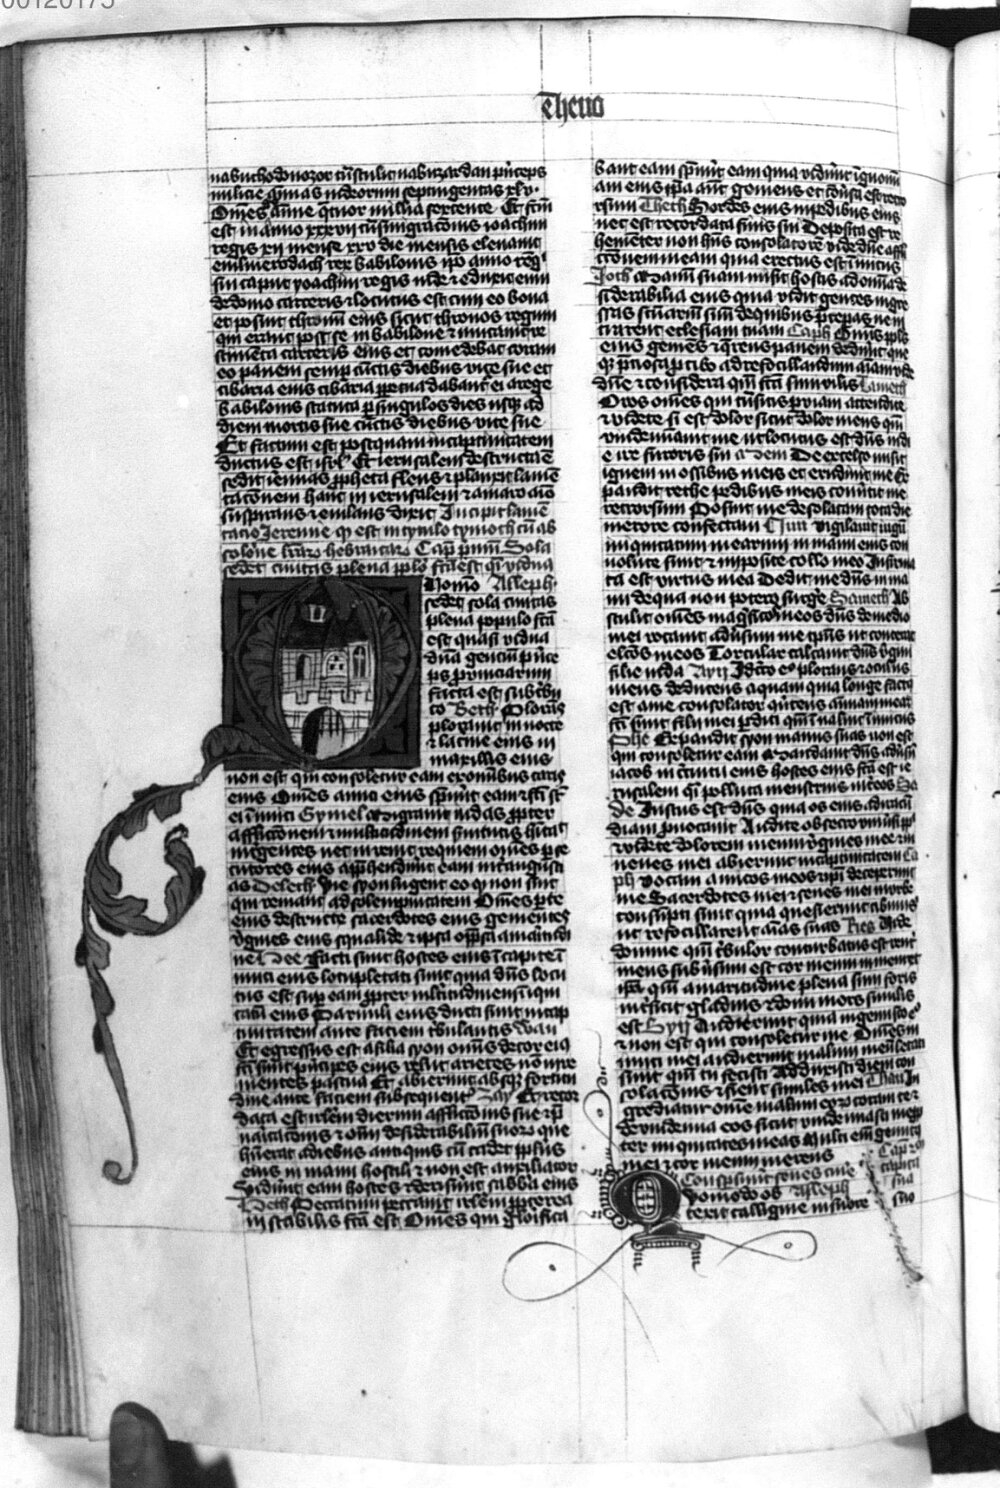 00120175
Theno
nabuchodonozor transtulit nabuzardan princeps
milicie animas iudeorum septingentas xlv.
Omnes anime quor millia sexcente. Et fcm
est in anno xxxvii transmigracionis ioachim
regis xii mense xxv die mensis eleuauit
euilmerodach rex babilonis ipo anno regni
sui caput yoachim regis iude et eduxit eum
de domo carceris et locutus est cum eo bona
et posuit thronum eius super thronos regum
qui erant post se in babilone et mutauit ve
stimenta carceris eius et comedebat coram
eo panem semper cunctis diebus vite sue et
cibaria eius cibaria perpetua dabantur ei a rege
babilonis statuta per singulos dies usque ad
diem mortis sue cunctis diebus vite sue
Et factum est postquam in captiuitatem
ductus est isrl Et ierusalem destructa e
sedit ieremias propheta flens et planxit lamen
tacionem hanc in ierusalem et amaro aio
suspirans et eiulans dixit Incipit lamen
tacio Jeremie
Cap primum Sola
sedet ciuitas plena pplo fca est qi vidua
Quomo Alleph
sedet sola ciuitas
plena populo fca
est quasi vidua
dna gencium prince
ps prouinciarum
facta est sub tribu
to Beth Plorans
plorauit in nocte
et lacrime eius in
maxillis eius
non est qui consoletur eam ex omnibus caris
eius Omnes amici eius spreuerunt eam et fci st
ei inimici Gymel Migrauit iudas propter
afflictionem et multitudinem seruitutis habitauit
inter gentes nec inuenit requiem omnes perse
cutores eius apprehenderunt eam inter angusti
as Deleth Vie syon lugent eo quod non sint
qui veniant ad solempnitatem Omnes porte
eius destructe sacerdotes eius gementes
virgines eius squalide et ipsa oppressa amaritudi
ne Hee Facti sunt hostes eius in capite i
nimici eius locupletati sunt quia dns locu
tus est super eam propter multitudinem iniqui
tatum eius Paruuli eius ducti sunt in cap
tiuitatem ante faciem tribulantis Wau
Et egressus est a filia syon omnis decor eius
fci sunt principes eius velut arietes non inue
nientes pascua Et abierunt absque fortitu
dine ante faciem subsequentis Zay Recor
data est irlem dierum afflictionis sue et p
uaricationis et omnium desiderabilium suorum que
habuerat a diebus antiquis cum caderet pplus
eius in manu hostili et non esset auxiliator
Viderunt eam hostes et deriserunt sabbata eius
Heth Peccatum peccauit irlem propterea
instabilis fca est Omnes qui glorifica
bant eam spreuerunt eam quia viderunt ignomi
am eius ipa autem gemens et conuersa est retro
rsum Theth Sordes eius in pedibus eius
nec est recordata finis sui Deposita est ve
hementer non habens consolatorem vide dne affli
ctionem meam quia erectus est inimicus
Joth Manum suam misit hostis ad omnia de
siderabilia eius quia vidit gentes ingre
ssas scuarium suum de quibus preceperas ne in
trarent ecclesiam tuam Caph Omnis ppls
eius gemens et querens panem dederunt que
que preciosa pro cibo ad refocillandum animam vide
dne et considera quoniam fca sum vilis Lameth
O vos omnes qui transitis per viam attendite
et videte si est dolor sicut dolor meus quoniam
vindemiauit me ut locutus est dns in di
e ire furoris sui Mem De excelso misit
ignem in ossibus meis et erudiuit me Ex
pandit rethe pedibus meis conuertit me
retrorsum Posuit me desolatam tota die
merore confectam Nun Vigilauit iugum
iniquitatum mearum in manu eius con
uolute sunt et imposite collo meo Infirma
ta est virtus mea Dedit me dns in ma
nu de qua non potero surgere Sameth Ab
stulit omnes magnificos meos dns de medio
mei vocauit aduersum me tempus ut contereret
electos meos Torcular calcauit dns virgini
filie iuda Ayn Idcirco ego plorans et oculus
meus deducens aquam quia longe factus
est a me consolator conuertens animam meam
fci sunt filii mei perditi quoniam inualuit inimicus
Phe Expandit syon manus suas non est
qui consoletur eam Mandauit dns aduersum
iacob in circuitu eius hostes eius fca est ie
rusalem quasi polluta menstruis inter eos Sa
de Justus est dns quia os eius ad iracun
diam prouocaui Audite obsecro vniuersi pp
et videte dolorem meum virgines mee et iu
uenes mei abierunt in captiuitatem Ca
ph Vocaui amicos meos et ipi deceperunt
me Sacerdotes mei et senes mei in vrbe
consumpti sunt quia quesierunt cibum sibi
ut refocillarent animas suas Res Vide
domine quoniam tribulor conturbatus est venter
meus subuersum est cor meum in memet
ipa quoniam amaritudine plena sum foris
interficit gladius et domi mors similis
est Syn Audierunt quia ingemisco e
et non est qui consoletur me Omnes in
imici mei audierunt malum meum letati
sunt quoniam tu fecisti Adduxisti diem con
solacionis et fient similes mei Thau In
grediatur omne malum eorum coram te et
deuindemia eos sicut vindemiasti me pp
ter iniquitates meas Multi enim gemitus
mei et cor meum merens
Cap
Quomodo ob Alleph
texit caligine in furore suo